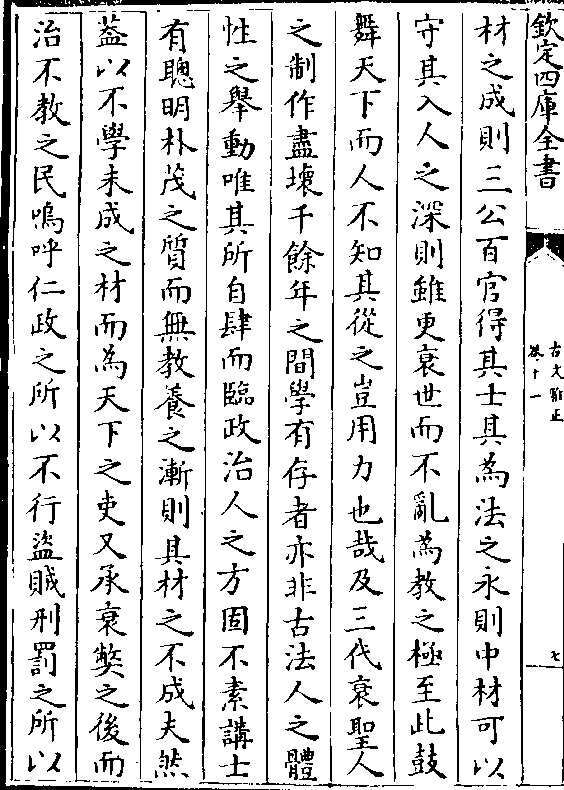 欽定四庫全書
古文雅正
卷十一
七
材之成則三公百官得其士其為法之永則中材可以
守其入人之深則雖更衰世而不亂為教之極至此鼓
舞天下而人不知其從之豈用力也哉及三代衰聖人
之制作盡壞千餘年之間學有存者亦非古法人之體
性之舉動唯其所自肆而臨政治人之方固不素講士
有聰明朴茂之質而無教養之漸則其材之不成夫然
葢以不學未成之材而為天下之吏又承衰弊之後而
治不教之民嗚呼仁政之所以不行盜賊刑罰之所以